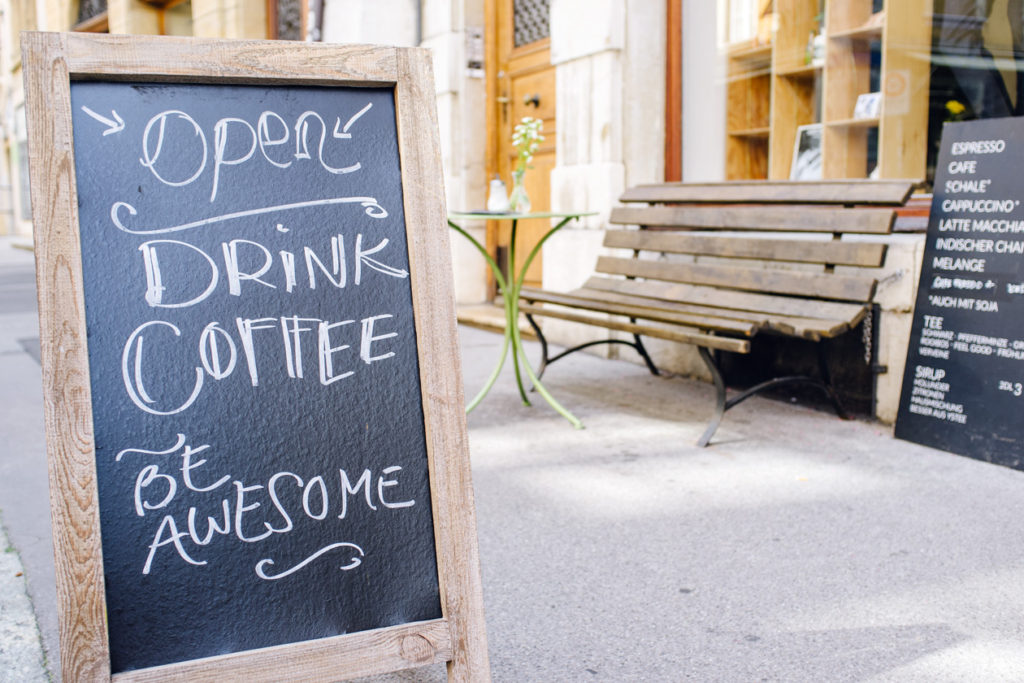 Open
DRINK
COFFEE
BE
AWESOME
ESPRESSO
CAFE
SCHALE*
CAPPUCCINO*
LATTE MACCHIA
INDISCHER CHAI
MELANGE
*AUCH MIT SOJA
TEE
SCHWARZ - PFEFFERMINZE - GR
ROOIBOS - FEEL GOOD - FRÜHL
VERVEINE
SIRUP 2DL 3
HOLUNDER
ZITRONEN
HAUSMISCHUNG
BESSER AUS